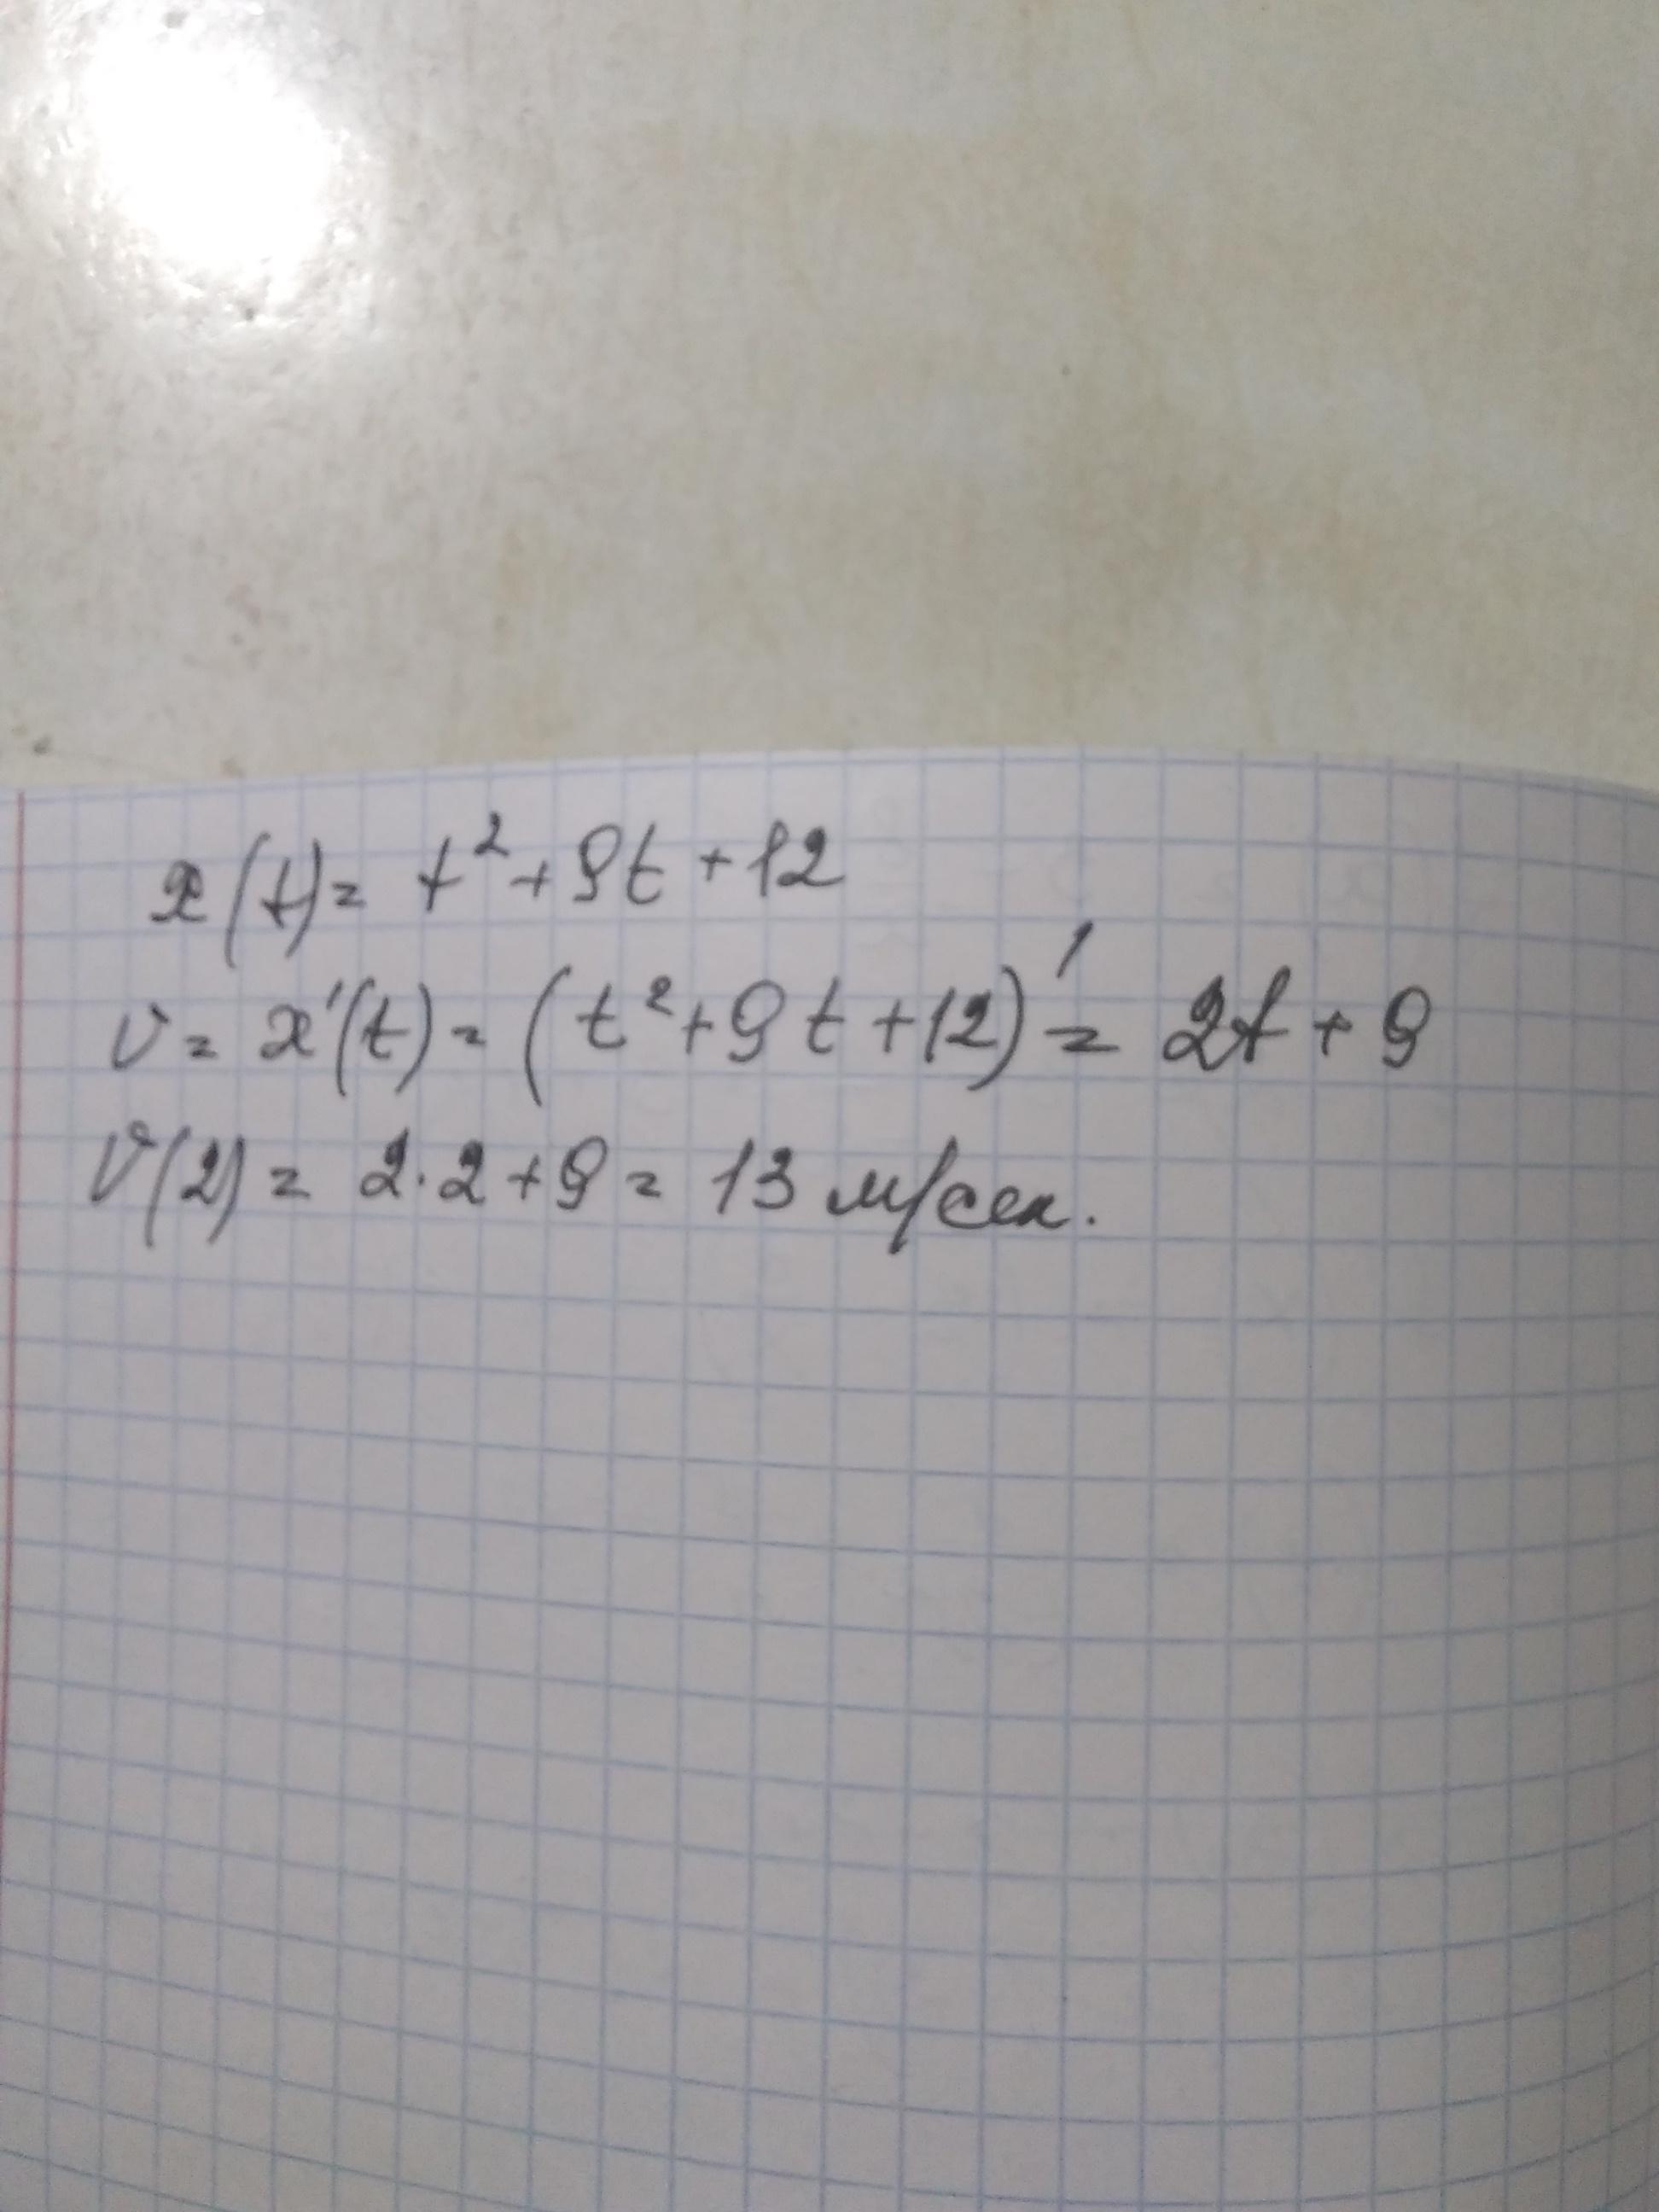 x(t)= t²+9t+12
v= x'(t)= (t²+9t+12)'= 2t+9
v(2)= 2·2+9= 13 м/сек.